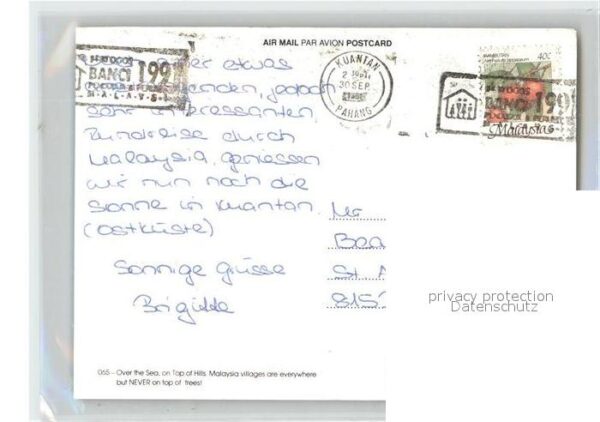 AIR MAIL PAR AVION POSTCARD
KUANTAN
30 SEP
PAHANG
40c
BANCI 199
BANCI 199
Malaysia
etwas
jedoch
sehr interessanten
Rundreise durch
Malaysia, geniessen
wir nun noch die
Sonne in Kuantan.
(Ostküste)
Sonnige Grüsse
Brigitte
Bea
St.
privacy protection
Datenschutz
065 – Over the Sea, on Top of Hills. Malaysia villages are everywhere
but NEVER on top of trees!